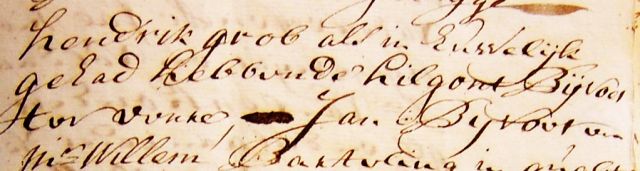 hendrik grob als in Huwelijk
gehad hebbende hilgont Bijvoet
ter eenre, Jan Bijvoot en
Mr. Willem Barteling in